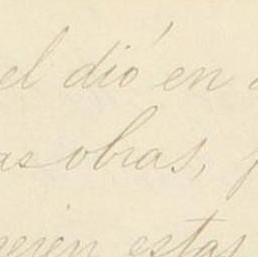 el dió en
as obras,
estas